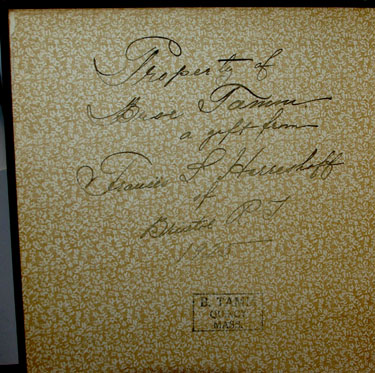 Property of
Tamm
a gift from
Francis L Herreshoff
of
Bristol R I
B. TAMM
QUINCY
MASS.